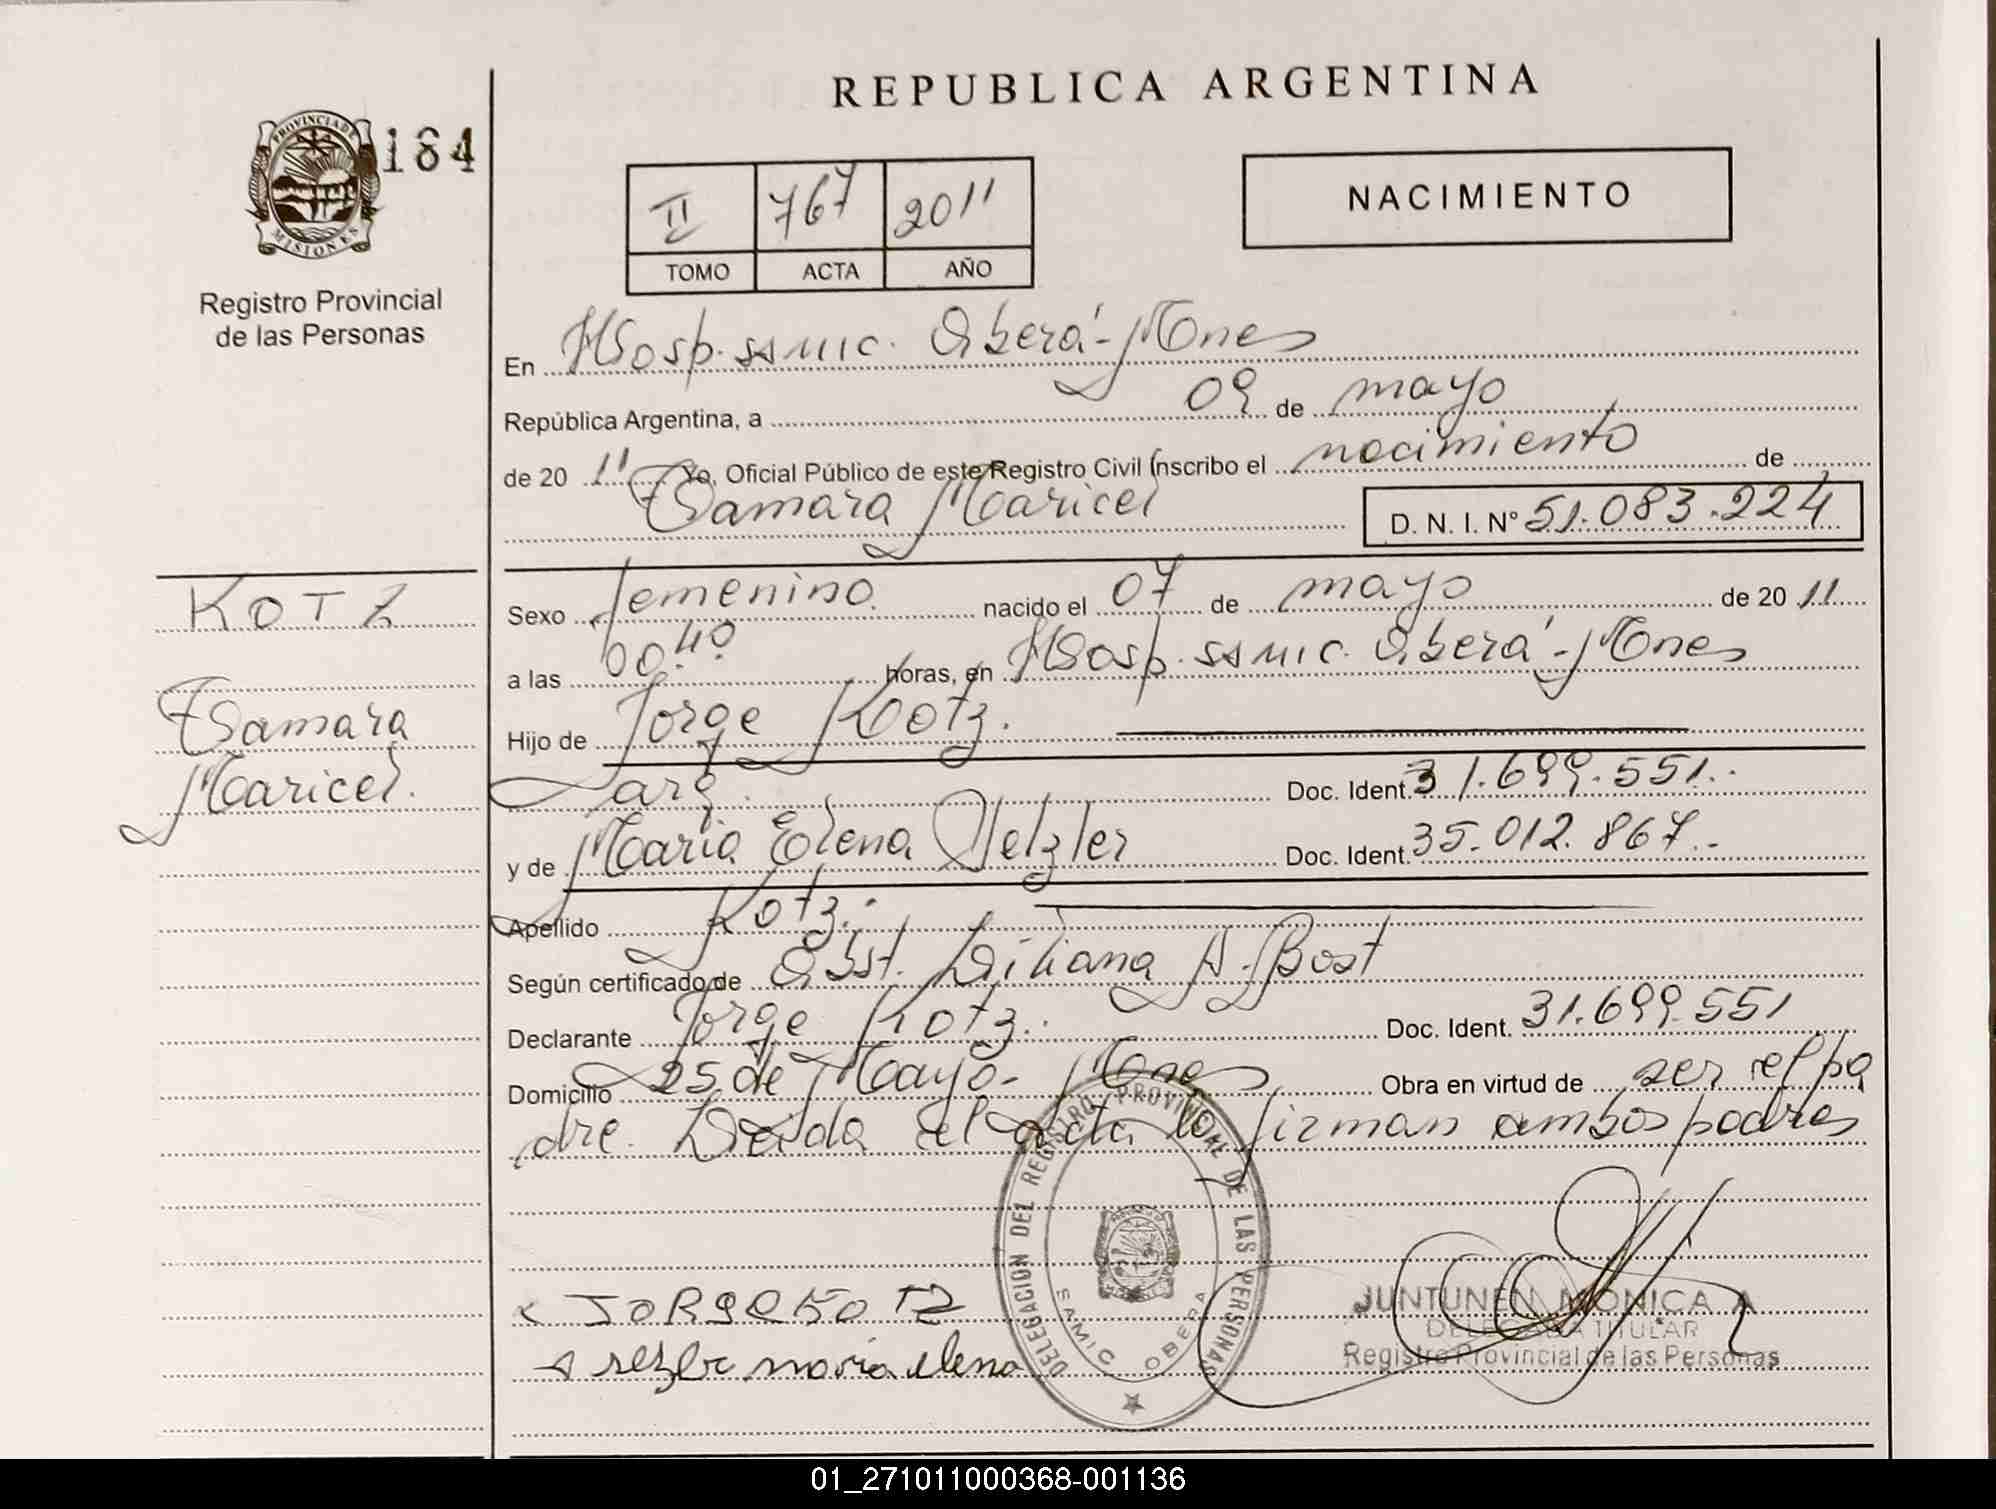 REPUBLICA ARGENTINA
PROVINCIA DE
MISIONES
184
Registro Provincial
de las Personas
II 767 2011
TOMO ACTA AÑO
NACIMIENTO
En Hosp. SAMIC. Oberá - Mnes
República Argentina, a 09 de mayo
de 20 11 Yo, Oficial Público de este Registro Civil inscribo el nacimiento de
Tamara Maricel
D. N. I. N° 51.083.224
KOTZ
Tamara
Maricel.
Sexo femenino. nacido el 07 de mayo de 20 11
a las 00.40 horas, en Hosp. SAMIC. Oberá - Mnes
Hijo de Jorge Kotz.
arg. Doc. Ident. 31.699.551.
y de Maria Elena Doc. Ident. 35.012.867.-
Apellido Kotz.
Según certificado de Obst. Liliana A. Bost
Declarante Jorge Kotz. Doc. Ident. 31.699.551
Domicilio 25 de Mayo - Mnes Obra en virtud de ser el pa
dre. Leida el acta la firman ambos padres
DELEGACION DEL REGISTRO PROVINCIAL DE LAS PERSONAS
SAMIC OBERA
x JORGE KOTZ
maria elena
JUNTUNEN MONICA A
DELEGADA TITULAR
Registro Provincial de las Personas
01_271011000368-001136